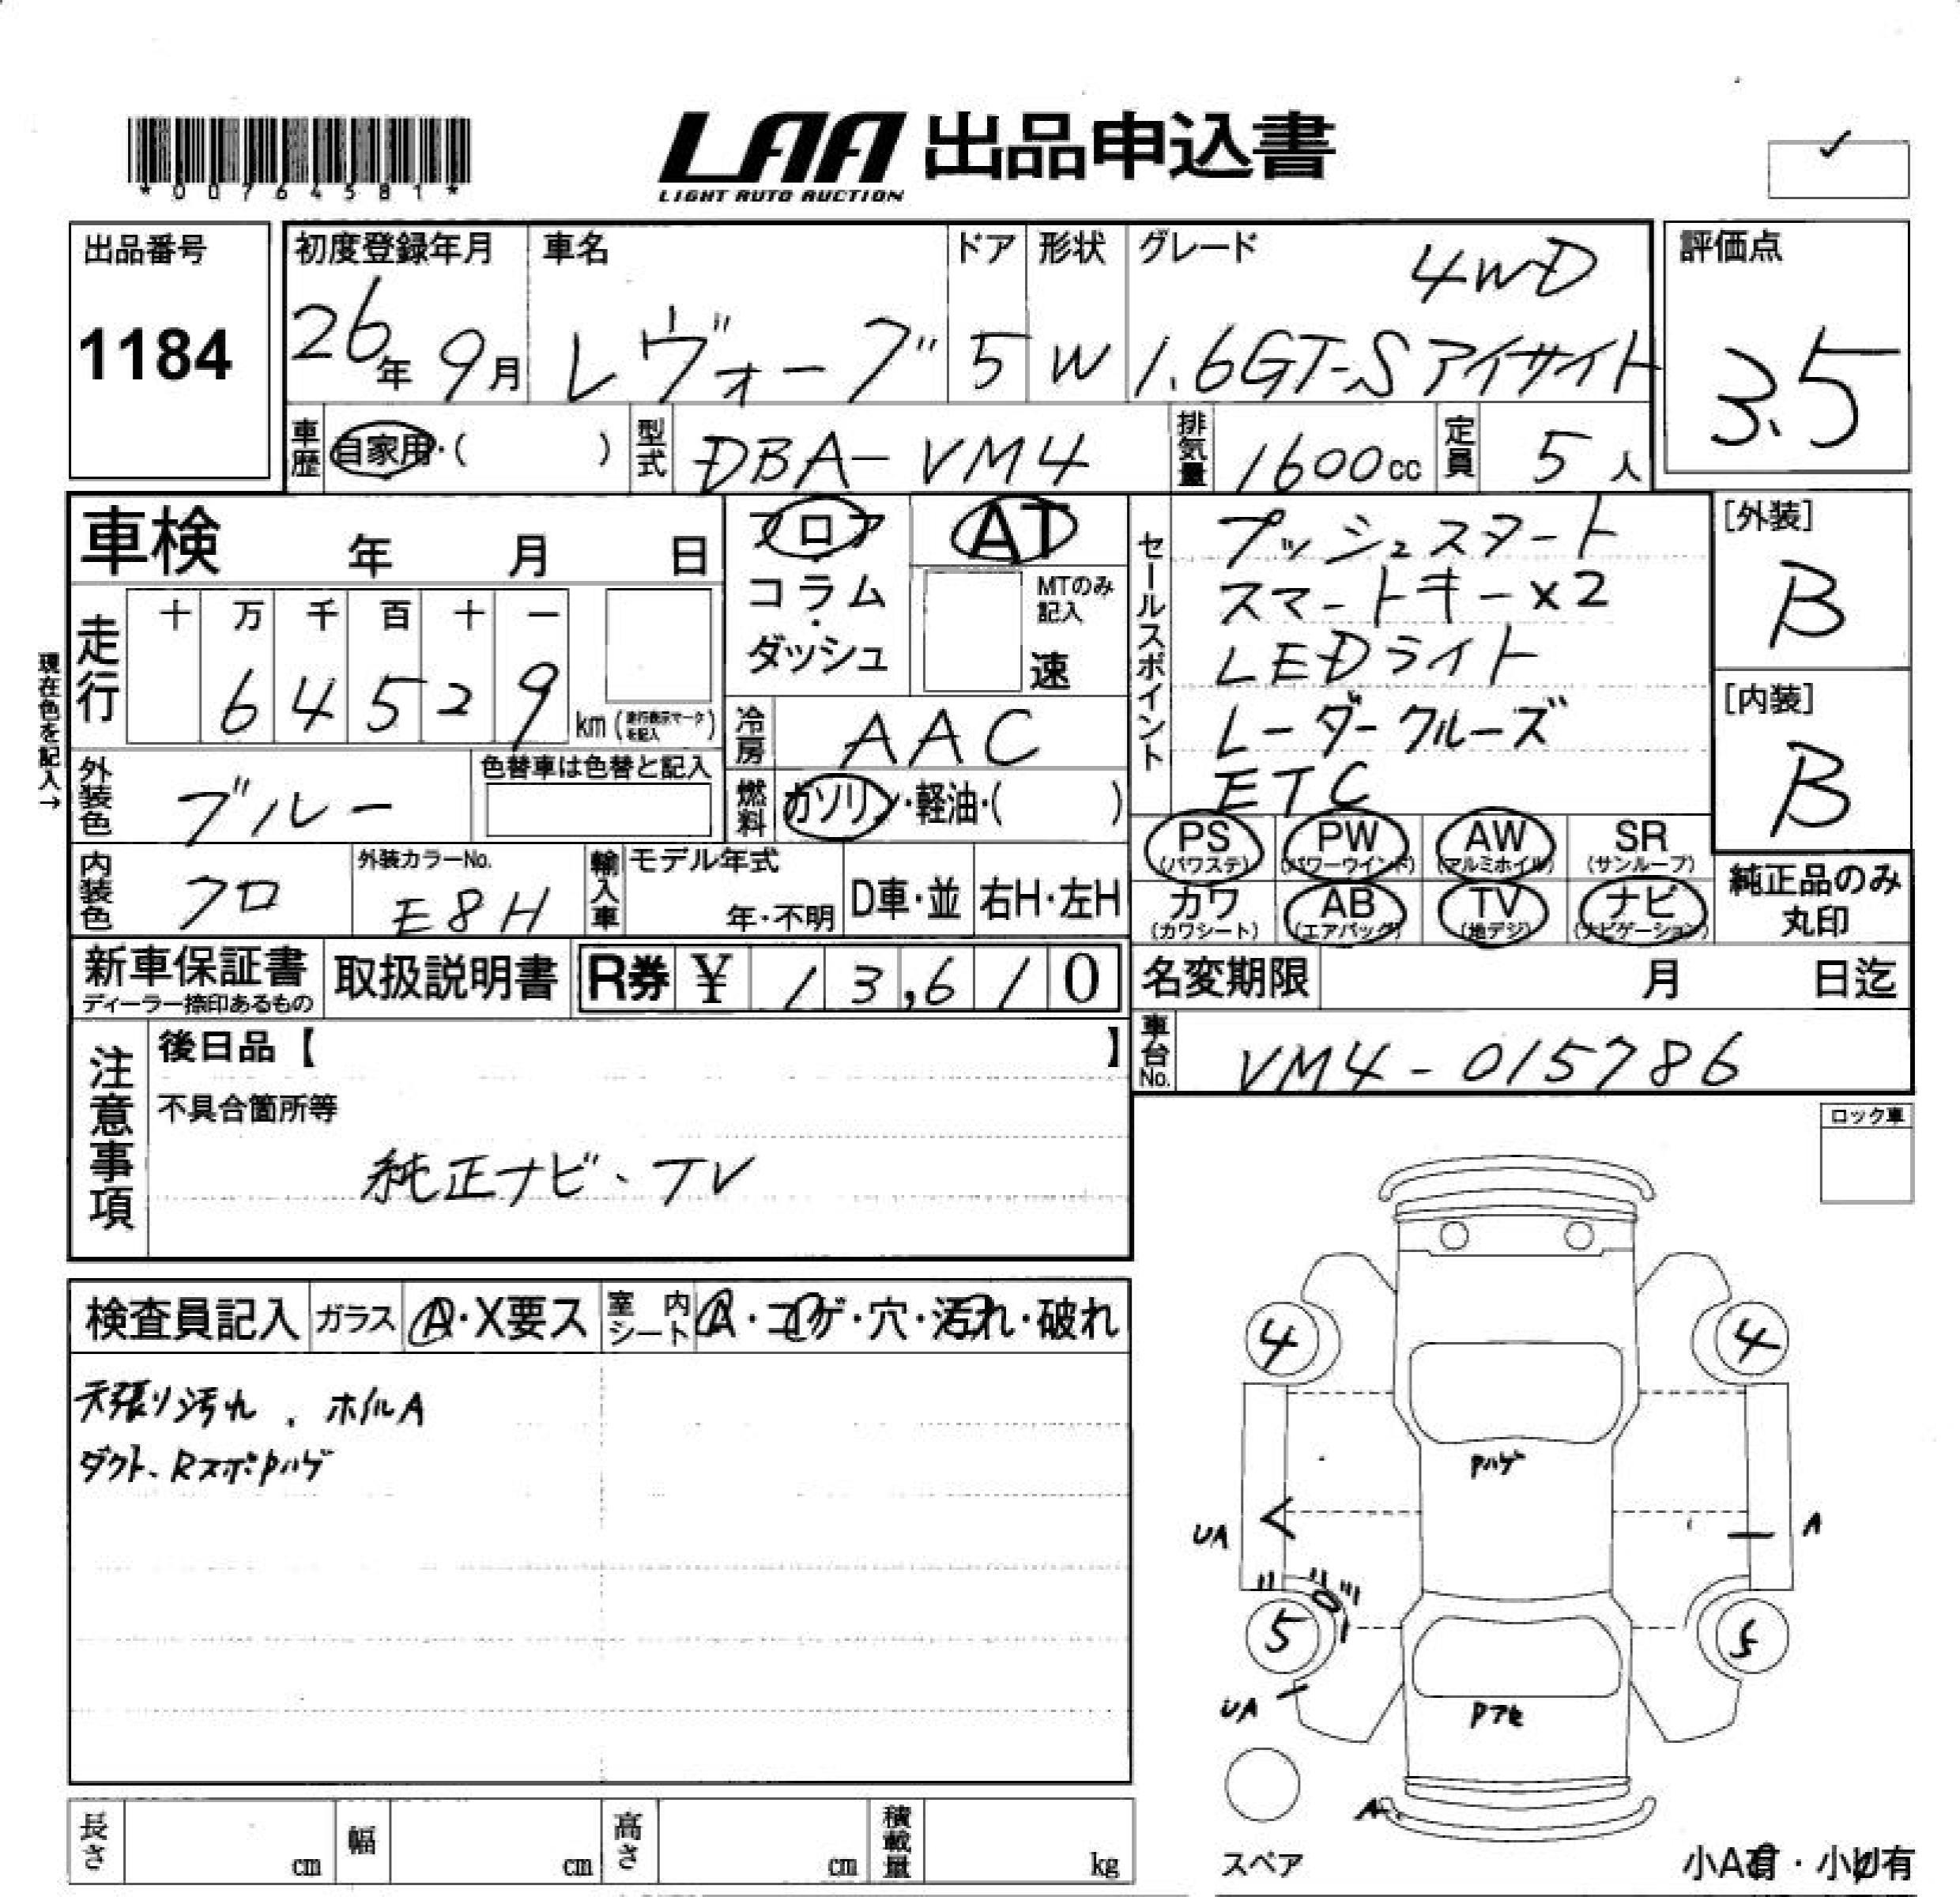 *00764581*
LAA 出品申込書
LIGHT AUTO AUCTION
出品番号
1184
初度登録年月
26年 9月
車名
レヴォーグ
ドア
5
形状
W
グレード
4WD
1.6GT-Sアイサイト
評価点
3.5
車歴 自家用・( )
型式 DBA-VM4
排気量 1600cc
定員 5人
車検 年 月 日
フロア・コラム・ダッシュ
AT
MTのみ記入
速
セールスポイント
プッシュスタート
スマートキーx2
LEDライト
レーダークルーズ
ETC
[外装]
B
[内装]
B
現在色を記入→
走行
十 万 千 百 十 一
6 4 5 2 9 km (走行表示マークを記入)
冷房 AAC
外装色 ブルー
色替車は色替と記入
燃料 ガソリン・軽油・( )
PS (パワステ)
PW (パワーウインド)
AW (アルミホイル)
SR (サンルーフ)
カワ (カワシート)
AB (エアバッグ)
TV (地デジ)
ナビ (ナビゲーション)
純正品のみ丸印
内装色 クロ
外装カラーNo.
E8H
輸入車
モデル年式
年・不明
D車・並
右H・左H
新車保証書
ディーラー捺印あるもの
取扱説明書
R券 ¥ 13,610
名変期限 月 日迄
車台No. VM4-015786
注意事項
後日品【 】
不具合箇所等
純正ナビ、TV
ロック車
検査員記入 ガラス A・X要ス 室内シート A・コゲ・穴・汚れ・破れ
天張り汚れ、ホイルA
ダクト、RスポPハゲ
4
4
Pハゲ
UA
A
5
5
UA
Pアセ
A
スペア
小A有・小U有
長さ cm
幅 cm
高さ cm
積載量 kg